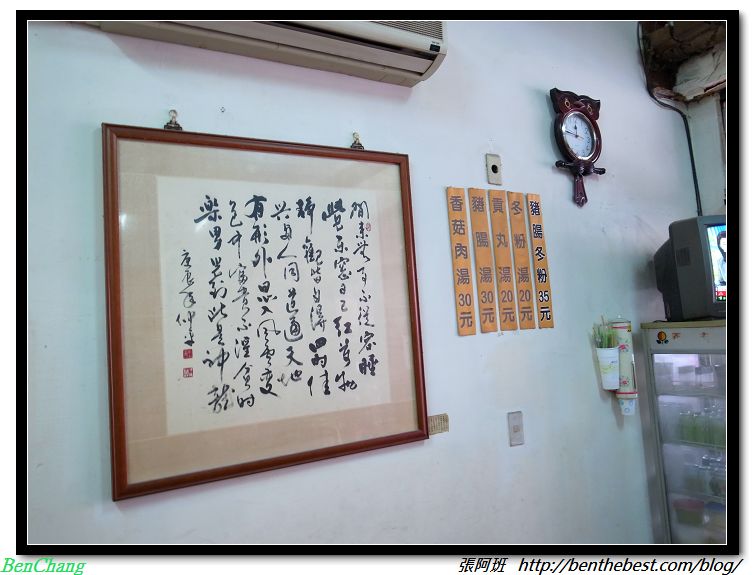 閒來無事不從容睡
覺東窗日已紅萬物
靜觀皆自得四時佳
興與人同道通天地
有形外思入風雲變
態中富貴不淫貧賤
樂男兒到此是
庚辰年仲
豬腸冬粉35元
冬粉湯20元
貢丸湯20元
豬腸湯30元
香菇肉湯30元
BenChang
張阿班 http://benthebest.com/blog/